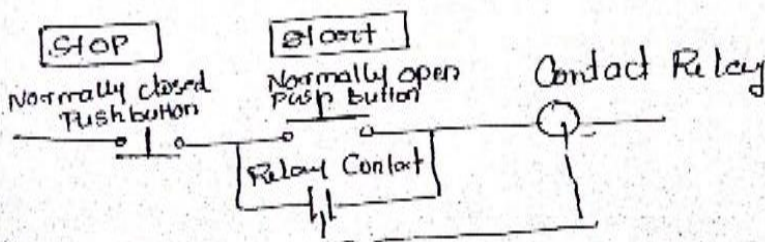 STOP
Start
Normally closed
Pushbutton
Normally open
Push button
Contact Relay
Relay Contact